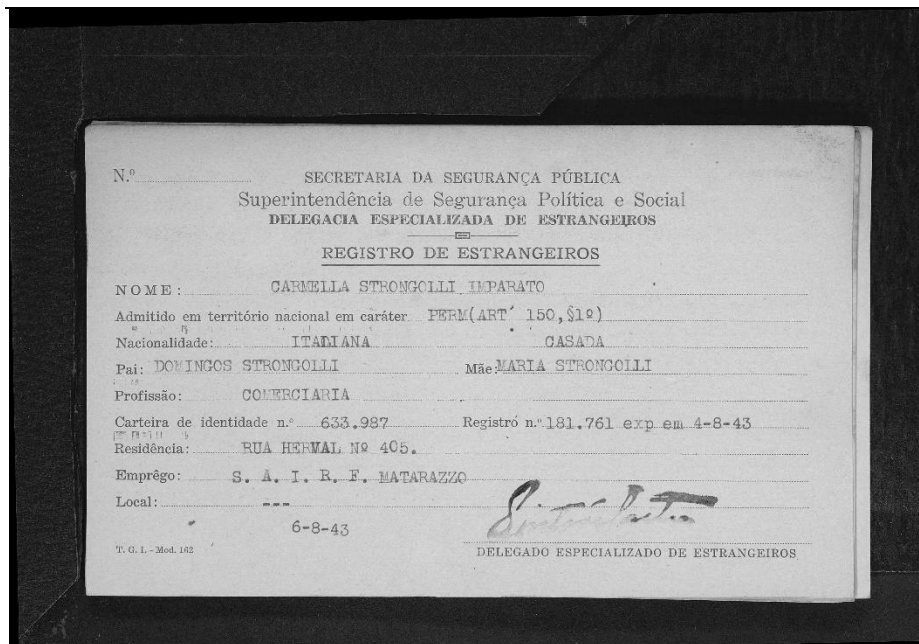 N.º SECRETARIA DA SEGURANÇA PÚBLICA
Superintendência de Segurança Política e Social
DELEGACIA ESPECIALIZADA DE ESTRANGEIROS
REGISTRO DE ESTRANGEIROS
NOME: CARMELLA STRONGOLLI IMPARATO
Admitido em território nacional em caráter PERM(ART 150,§1º)
Nacionalidade: ITALIANA CASADA
Pai: DOMINGOS STRONGOLLI Mãe: MARIA STRONGOLLI
Profissão: COMERCIARIA
Carteira de identidade n.º 633.987 Registró n.º 181.761 exp em 4-8-43
Residência: RUA HERVAL Nº 405.
Emprêgo: S. A. I. R. F. MATARAZZO
Local: ---
6-8-43
T. G. I. - Mod. 162 DELEGADO ESPECIALIZADO DE ESTRANGEIROS